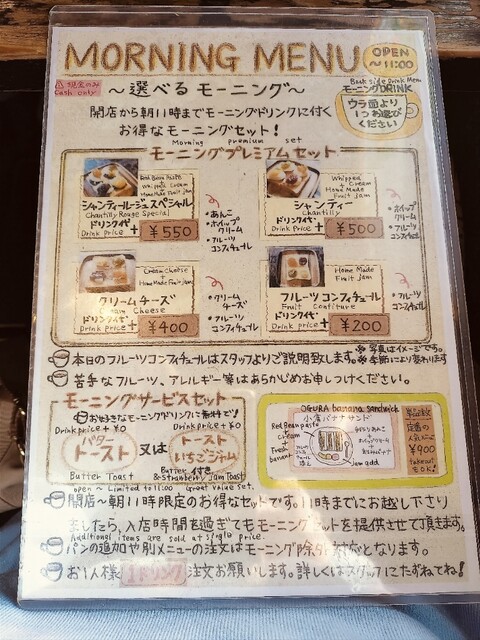 MORNING MENU
OPEN
~11:00
現金のみ
Cash only
~選べるモーニング~
Back side Drink Menu
モーニングDRINK
ウラ面より
1つお選び
ください
開店から朝11時までモーニングドリンクに付く
お得なモーニングセット!
Morning premium set
モーニングプレミアムセット
Red Bean Paste
Whipped Cream
Home Made Fruit Jam
シャンティールージュスペシャル
Chantilly Rouge Special
ドリンク代+
Drink price
¥550
・あんこ
・ホイップ
クリーム
・フルーツ
コンフィチュール
Whipped
Cream
+
Home Made
Fruit Jam
シャンティー
Chantilly
ドリンク代+
Drink price
¥500
・ホイップ
クリーム
・フルーツ
コンフィチュール
Cream Cheese
+
Home Made Fruit Jam
クリームチーズ
Cream Cheese
ドリンク代+
Drink price
¥400
・クリーム
チーズ
・フルーツ
コンフィチュール
Home Made
Fruit Jam
フルーツコンフィチュール
Fruit Confiture
ドリンク代+
Drink price
¥200
・フルーツ
コンフィチュール
本日のフルーツコンフィチュールはスタッフよりご説明致します。
※写真はイメージです。
※季節により変わります
苦手なフルーツ、アレルギー等はあらかじめお申しつけください。
モーニングサービスセット
お好きなモーニングドリンクに無料で
Drink price + ¥0
Drink price + ¥0
バター
トースト
又は
トースト
いちごジャム
Butter Toast
Butter & Strawberry Jam Toast
OGURA banana sandwich
小倉バナナサンド
Red Bean paste
cream
Fresh
banana
¥900
takeout
もOK!
open ~ Limited to 11:00 Great value set.
開店~朝11時限定のお得なセットです。11時までにお越し下さり
ましたら、入店時間を過ぎてもモーニングセットを提供させて頂きます。
Additional items are sold at single price.
パンの追加や別メニューの注文はモーニング除外対応となります。
お1人様1ドリンク注文お願いします。詳しくはスタッフにたずねてね!